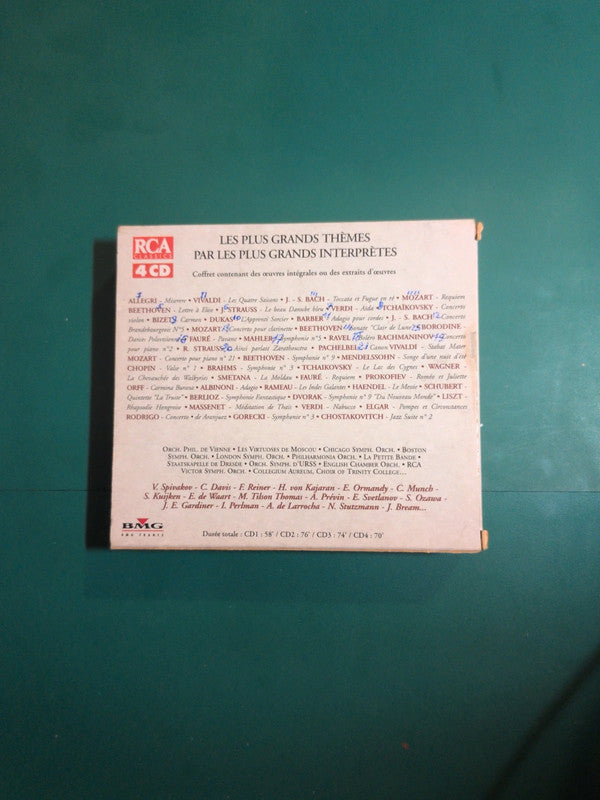 RCA
CLASSICS
4 CD
LES PLUS GRANDS THÈMES
PAR LES PLUS GRANDS INTERPRÈTES
Coffret contenant des œuvres intégrales ou des extraits d'œuvres
ALLEGRI - Miserere • VIVALDI - Les Quatre Saisons • J. - S. BACH - Toccata et Fugue en ré • MOZART - Requiem
BEETHOVEN - Lettre à Elise • J. STRAUSS - Le beau Danube bleu • VERDI - Aïda • TCHAÏKOVSKY - Concerto
violon • BIZET - Carmen • DUKAS - L'Apprenti Sorcier • BARBER - Adagio pour cordes • J. - S. BACH - Concerto
Brandebourgeois N°5 • MOZART - Concerto pour clarinette • BEETHOVEN - Sonate "Clair de Lune" • BORODINE -
Danses Polovtsiennes • FAURÉ - Pavane • MAHLER - Symphonie n°5 • RAVEL - Boléro • RACHMANINOV - Concerto
pour piano n°2 • R. STRAUSS - Ainsi parlait Zarathoustra • PACHELBEL - Canon • VIVALDI - Stabat Mater
MOZART - Concerto pour piano n° 21 • BEETHOVEN - Symphonie n° 9 • MENDELSSOHN - Songe d'une nuit d'été
CHOPIN - Valse n° 1 • BRAHMS - Symphonie n° 3 • TCHAIKOVSKY - Le Lac des Cygnes • WAGNER -
La Chevauchée des Walkyries • SMETANA - La Moldau • FAURÉ - Requiem • PROKOFIEV - Roméo et Juliette
ORFF - Carmina Burana • ALBINONI - Adagio • RAMEAU - Les Indes Galantes • HAENDEL - Le Messie • SCHUBERT -
Quintette "La Truite" • BERLIOZ - Symphonie Fantastique • DVORAK - Symphonie n° 9 "Du Nouveau Monde" • LISZT -
Rhapsodie Hongroise • MASSENET - Méditation de Thaïs • VERDI - Nabucco • ELGAR - Pompes et Circonstances
RODRIGO - Concerto de Aranjuez • GORECKI - Symphonie n° 3 • CHOSTAKOVITCH - Jazz Suite n° 2
ORCH. PHIL. DE VIENNE • LES VIRTUOSES DE MOSCOU • CHICAGO SYMPH. ORCH. • BOSTON
SYMPH. ORCH. • LONDON SYMPH. ORCH. • PHILHARMONIA ORCH. • LA PETITE BANDE •
STAATSKAPELLE DE DRESDE • ORCH. SYMPH. D'URSS • ENGLISH CHAMBER ORCH. • RCA
VICTOR SYMPH. ORCH. • COLLEGIUM AUREUM, CHOIR OF TRINITY COLLEGE...
V. Spivakov - C. Davis - F. Reiner - H. von Kajaran - E. Ormandy - C. Munch -
S. Kuijken - E. de Waart - M. Tilson Thomas - A. Prévin - E. Svetlanov - S. Ozawa -
J. E. Gardiner - I. Perlman - A. de Larrocha - N. Stutzmann - J. Bream...
BMG
BMG FRANCE
Durée totale : CD1 : 58' / CD2 : 76' / CD3 : 74' / CD4 : 70'